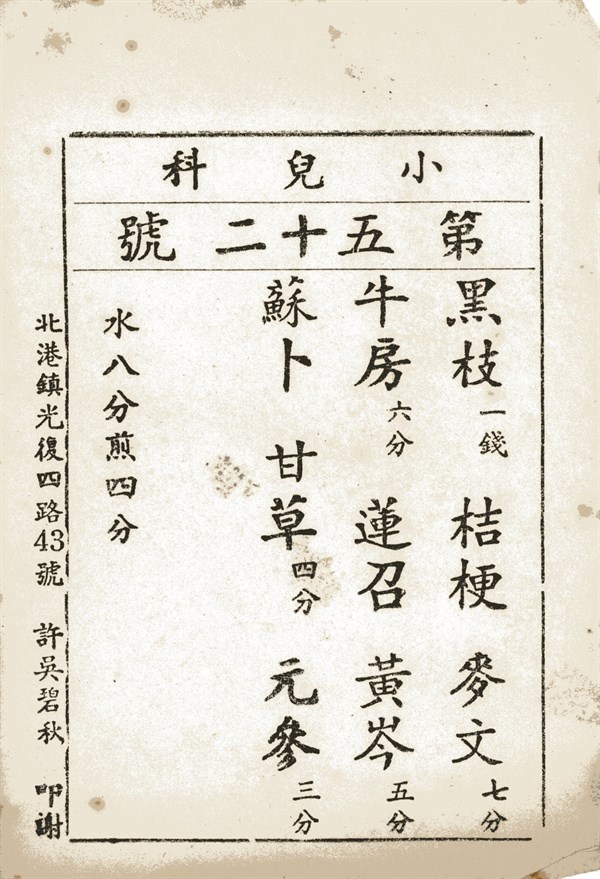 小兒科
第五十二號
黑枝一錢 桔梗 麥文七分
牛房六分 蓮召 黃岑五分
蘇卜 甘草四分 元參三分
水八分煎四分
北港鎮光復四路43號 許吳碧秋 叩謝